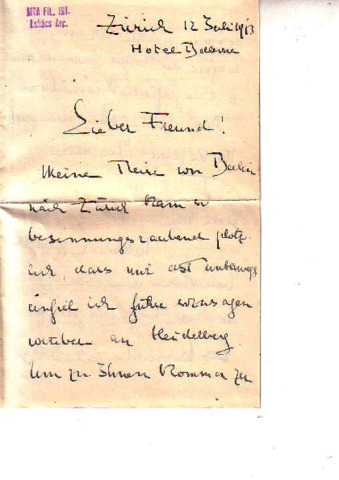 MTA FIL. INT.
Lukács Arc.
Zürich 12 Juli 1913
Hotel Bellerive
Lieber Freund!
Meine Reise von Berlin
nach Zürich kam so
besinnungsraubend plötz-
lich, dass mir erst unterwegs
einfiel ich führe sozusagen
vorüber an Heidelberg.
Um zu Ihnen kommen zu